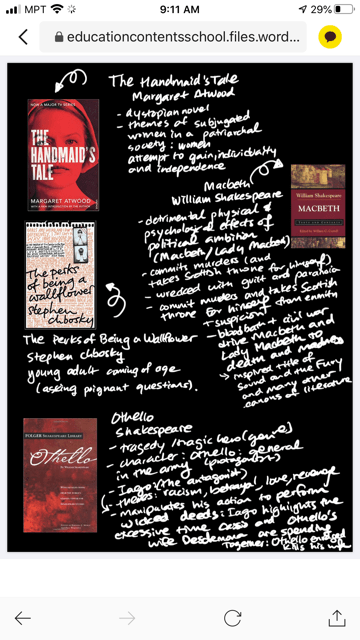 MPT
9:11 AM
29%
educationcontentsschool.files.word...
The Handmaid's Tale
Margaret Atwood
- dystopian novel
- themes of subjugated
women in a patriarchal
society: women
attempt to gain individuality
and independence
NOW A MAJOR TV SERIES
THE
HANDMAID'S
TALE
MARGARET ATWOOD
Macbeth
William Shakespeare
- detrimental physical &
psychological effects of
political ambition
(Macbeth/Lady Macbeth)
- commits murders (and
takes Scottish throne for himself)
- wrecked with guilt and paranoia
- commit murders and takes Scottish
throne for himself from enmity
+ suspicion
- bloodbath + civil war
drive Macbeth and
Lady Macbeth to
death and madness
↳ inspired title of
Sound and the Fury
and many other
canons of literature
William Shakespeare
MACBETH
The perks
of being a
wallflower
stephen
chbosky
The Perks of Being a Wallflower
Stephen Chbosky
young adult coming of age
(asking pignant questions).
FOLGER SHAKESPEARE LIBRARY
Othello
Othello
Shakespeare
- tragedy/tragic hero (genre)
- character: Othello: general
in the army (protagonist)
- Iago: (the antagonist)
- themes: racism, betrayal, love, revenge
- manipulates his action to perform
wicked deeds: Iago highlights the
excessive time Cassio and Othello's
wife Desdemona are spending
together: Othello enraged
kills his wife